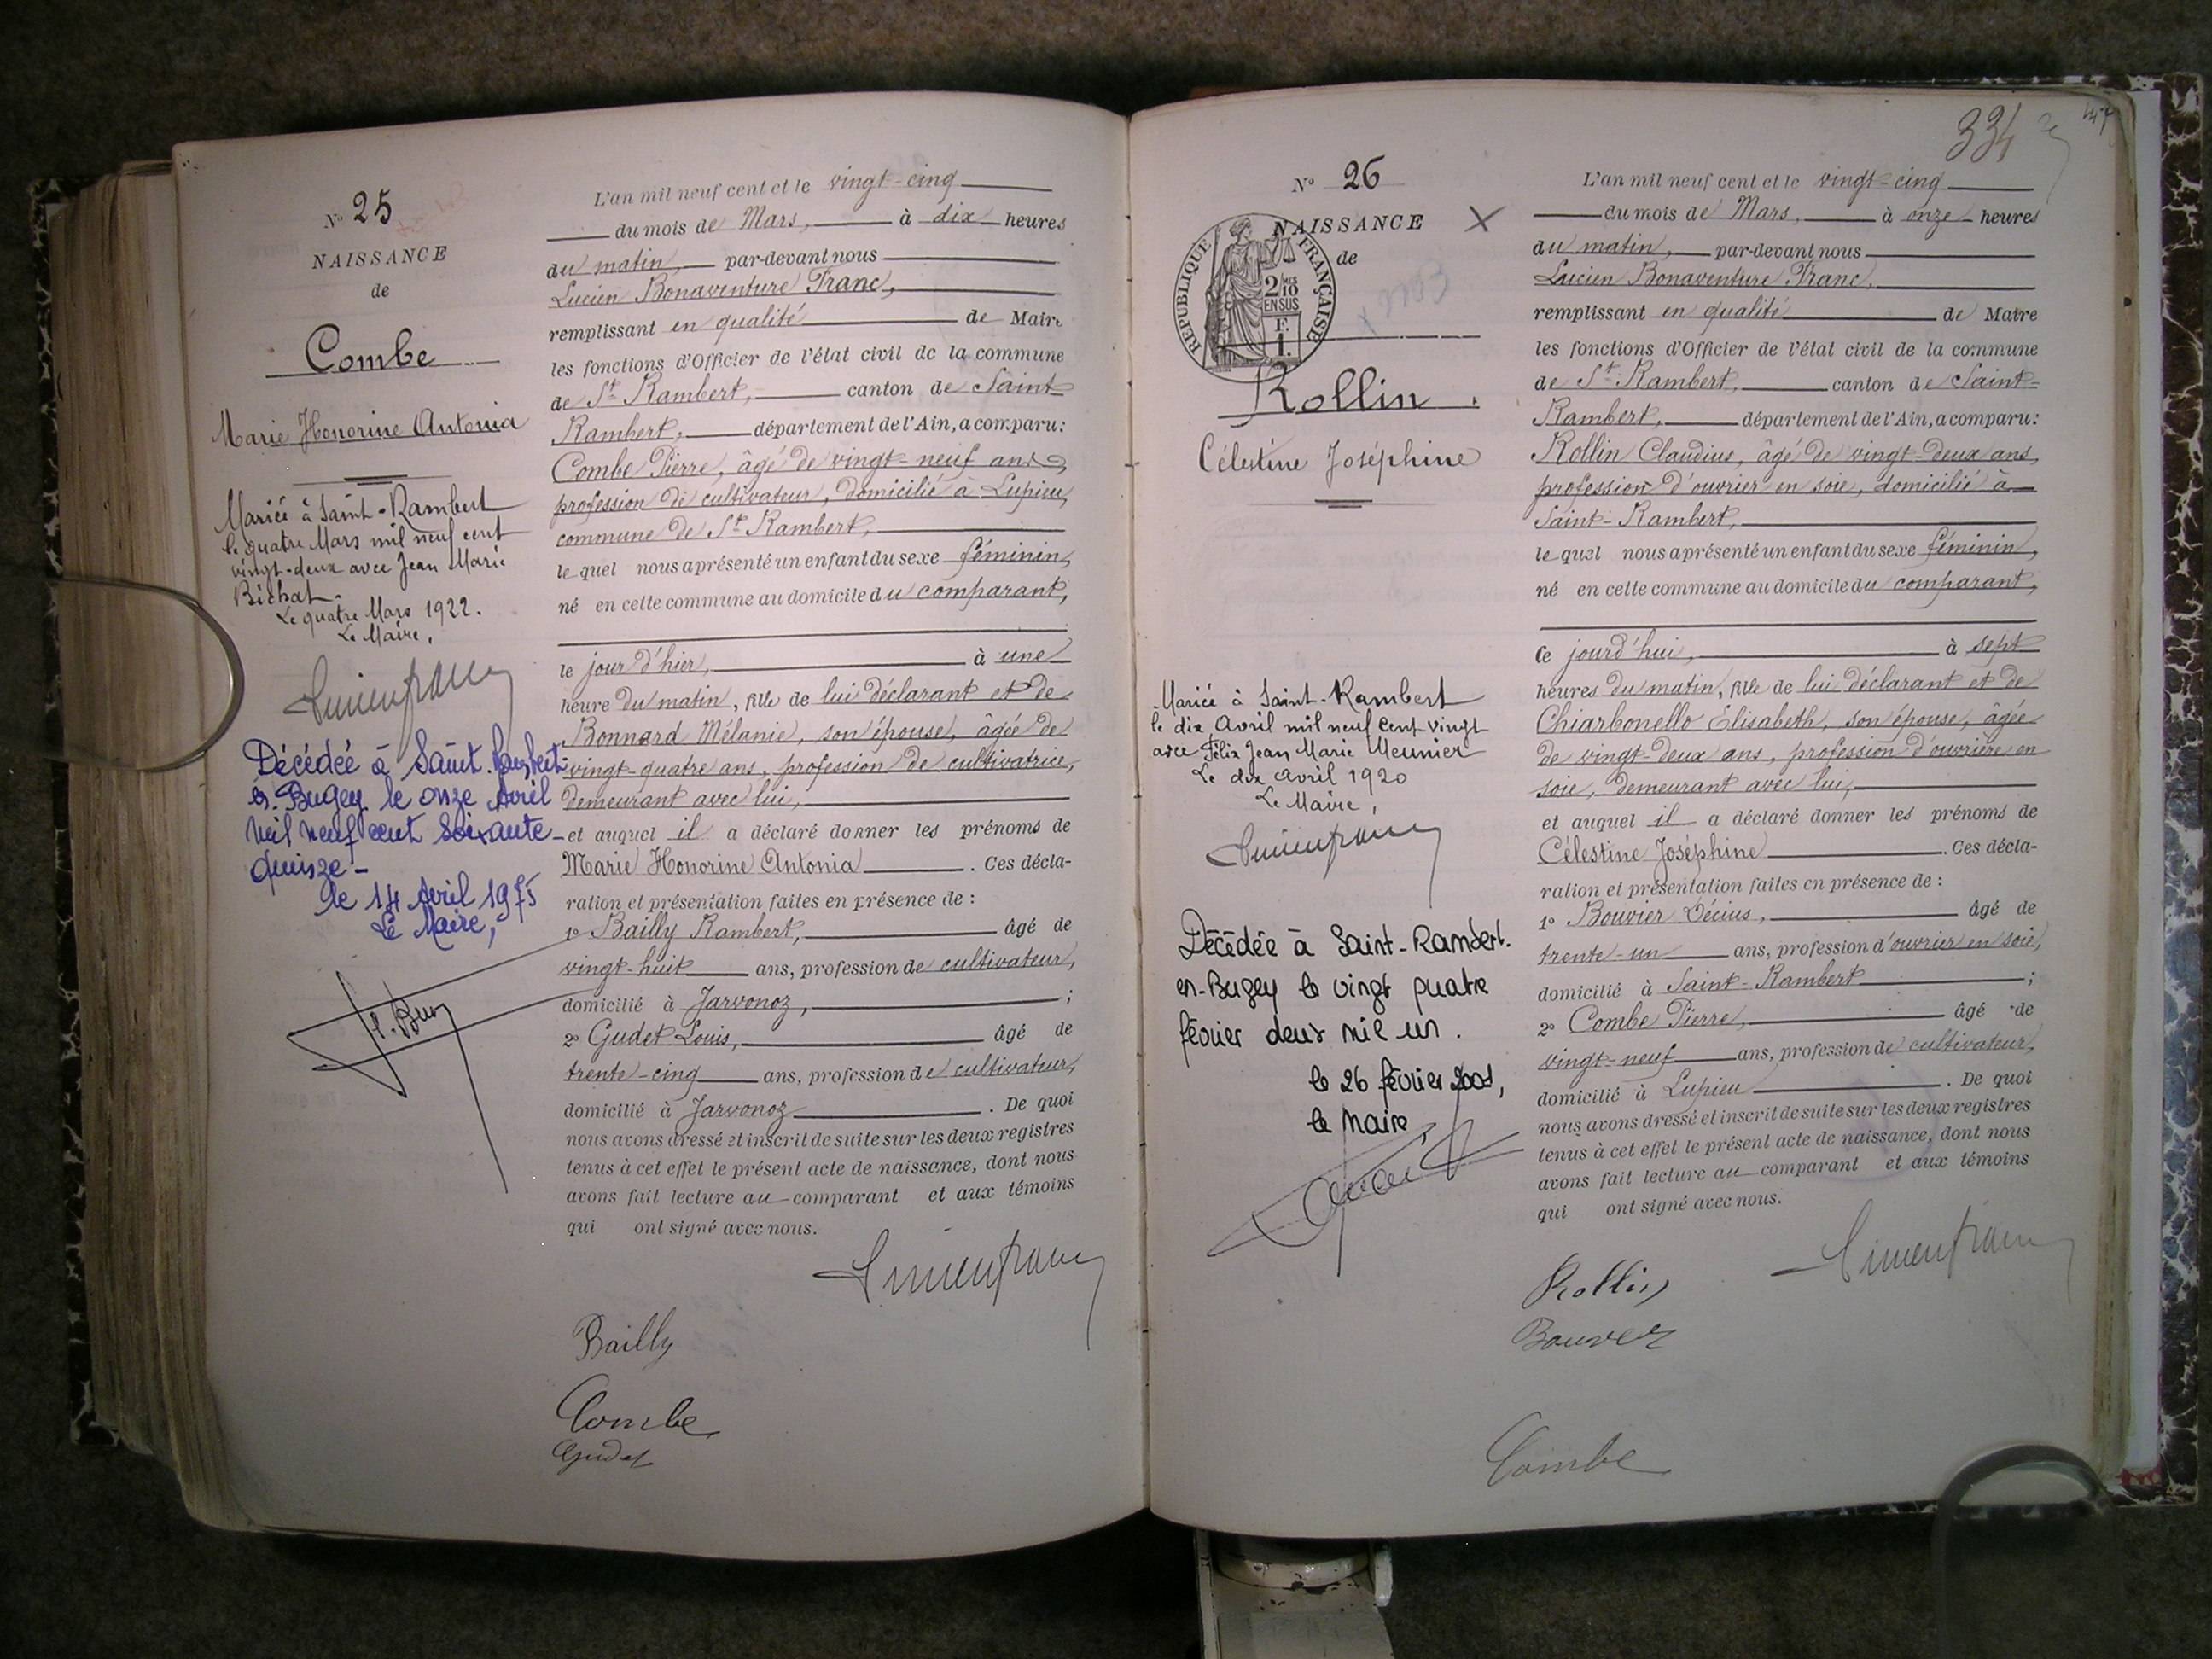 N° 25
NAISSANCE
de
Combe
Marie Honorine Antonia
Mariée à Saint-Rambert
le quatre Mars mil neuf cent
vingt-deux avec Jean Marie
Bichat.
Le quatre Mars 1922.
Le Maire,
Décédée à Saint-Rambert-
en-Bugey le onze Avril
mil neuf cent soixante-
quinze-
le 14 Avril 1975
Le Maire,
L'an mil neuf cent et le vingt-cinq
du mois de Mars, à dix heures
du matin, par-devant nous
Lucien Bonaventure Franc,
remplissant en qualité de Maire
les fonctions d'Officier de l'état civil de la commune
de St Rambert, canton de Saint-
Rambert, département de l'Ain, a comparu:
Combe Pierre, âgé de vingt-neuf ans,
profession de cultivateur, domicilié à Lupieu,
commune de St Rambert,
le quel nous a présenté un enfant du sexe féminin,
né en cette commune au domicile du comparant,
le jour d'hier, à une
heure du matin, fille de lui déclarant et de
Bonnard Mélanie, son épouse, âgée de
vingt-quatre ans, profession de cultivatrice,
demeurant avec lui,
et auquel il a déclaré donner les prénoms de
Marie Honorine Antonia. Ces décla-
ration et présentation faites en présence de :
1° Bailly Rambert, âgé de
vingt-huit ans, profession de cultivateur,
domicilié à Jarvonoz, ;
2° Gudet Louis, âgé de
trente-cinq ans, profession de cultivateur,
domicilié à Jarvonoz. De quoi
nous avons dressé et inscrit de suite sur les deux registres
tenus à cet effet le présent acte de naissance, dont nous
avons fait lecture au comparant et aux témoins
qui ont signé avec nous.
Lucien franc
Bailly
Combe
Gudet
334
N° 26
NAISSANCE
de
RÉPUBLIQUE FRANÇAISE
2 MES
10
EN SUS
F.
1.
Rollin
Célestine Joséphine
Mariée à Saint-Rambert
le dix Avril mil neuf cent vingt
avec Félix Jean Marie Meunier
Le dix Avril 1920
Le Maire,
Décédée à Saint-Rambert-
en-Bugey le vingt quatre
février deux mil un.
le 26 février 2001,
le Maire,
L'an mil neuf cent et le vingt-cinq
du mois de Mars, à onze heures
du matin, par-devant nous
Lucien Bonaventure Franc,
remplissant en qualité de Maire
les fonctions d'Officier de l'état civil de la commune
de St Rambert, canton de Saint-
Rambert, département de l'Ain, a comparu:
Rollin Claudius, âgé de vingt-deux ans,
profession d'ouvrier en soie, domicilié à
Saint-Rambert,
le quel nous a présenté un enfant du sexe féminin,
né en cette commune au domicile du comparant,
ce jourd'hui, à sept
heures du matin, fille de lui déclarant et de
Chiarbonello Elisabeth, son épouse, âgée
de vingt-deux ans, profession d'ouvrière en
soie, demeurant avec lui,
et auquel il a déclaré donner les prénoms de
Célestine Joséphine. Ces décla-
ration et présentation faites en présence de :
1° Bouvier Décius, âgé de
trente-un ans, profession d'ouvrier en soie,
domicilié à Saint-Rambert ;
2° Combe Pierre, âgé de
vingt-neuf ans, profession de cultivateur,
domicilié à Lupieu. De quoi
nous avons dressé et inscrit de suite sur les deux registres
tenus à cet effet le présent acte de naissance, dont nous
avons fait lecture au comparant et aux témoins
qui ont signé avec nous.
Lucien franc
Rollin
Bouvier
Combe